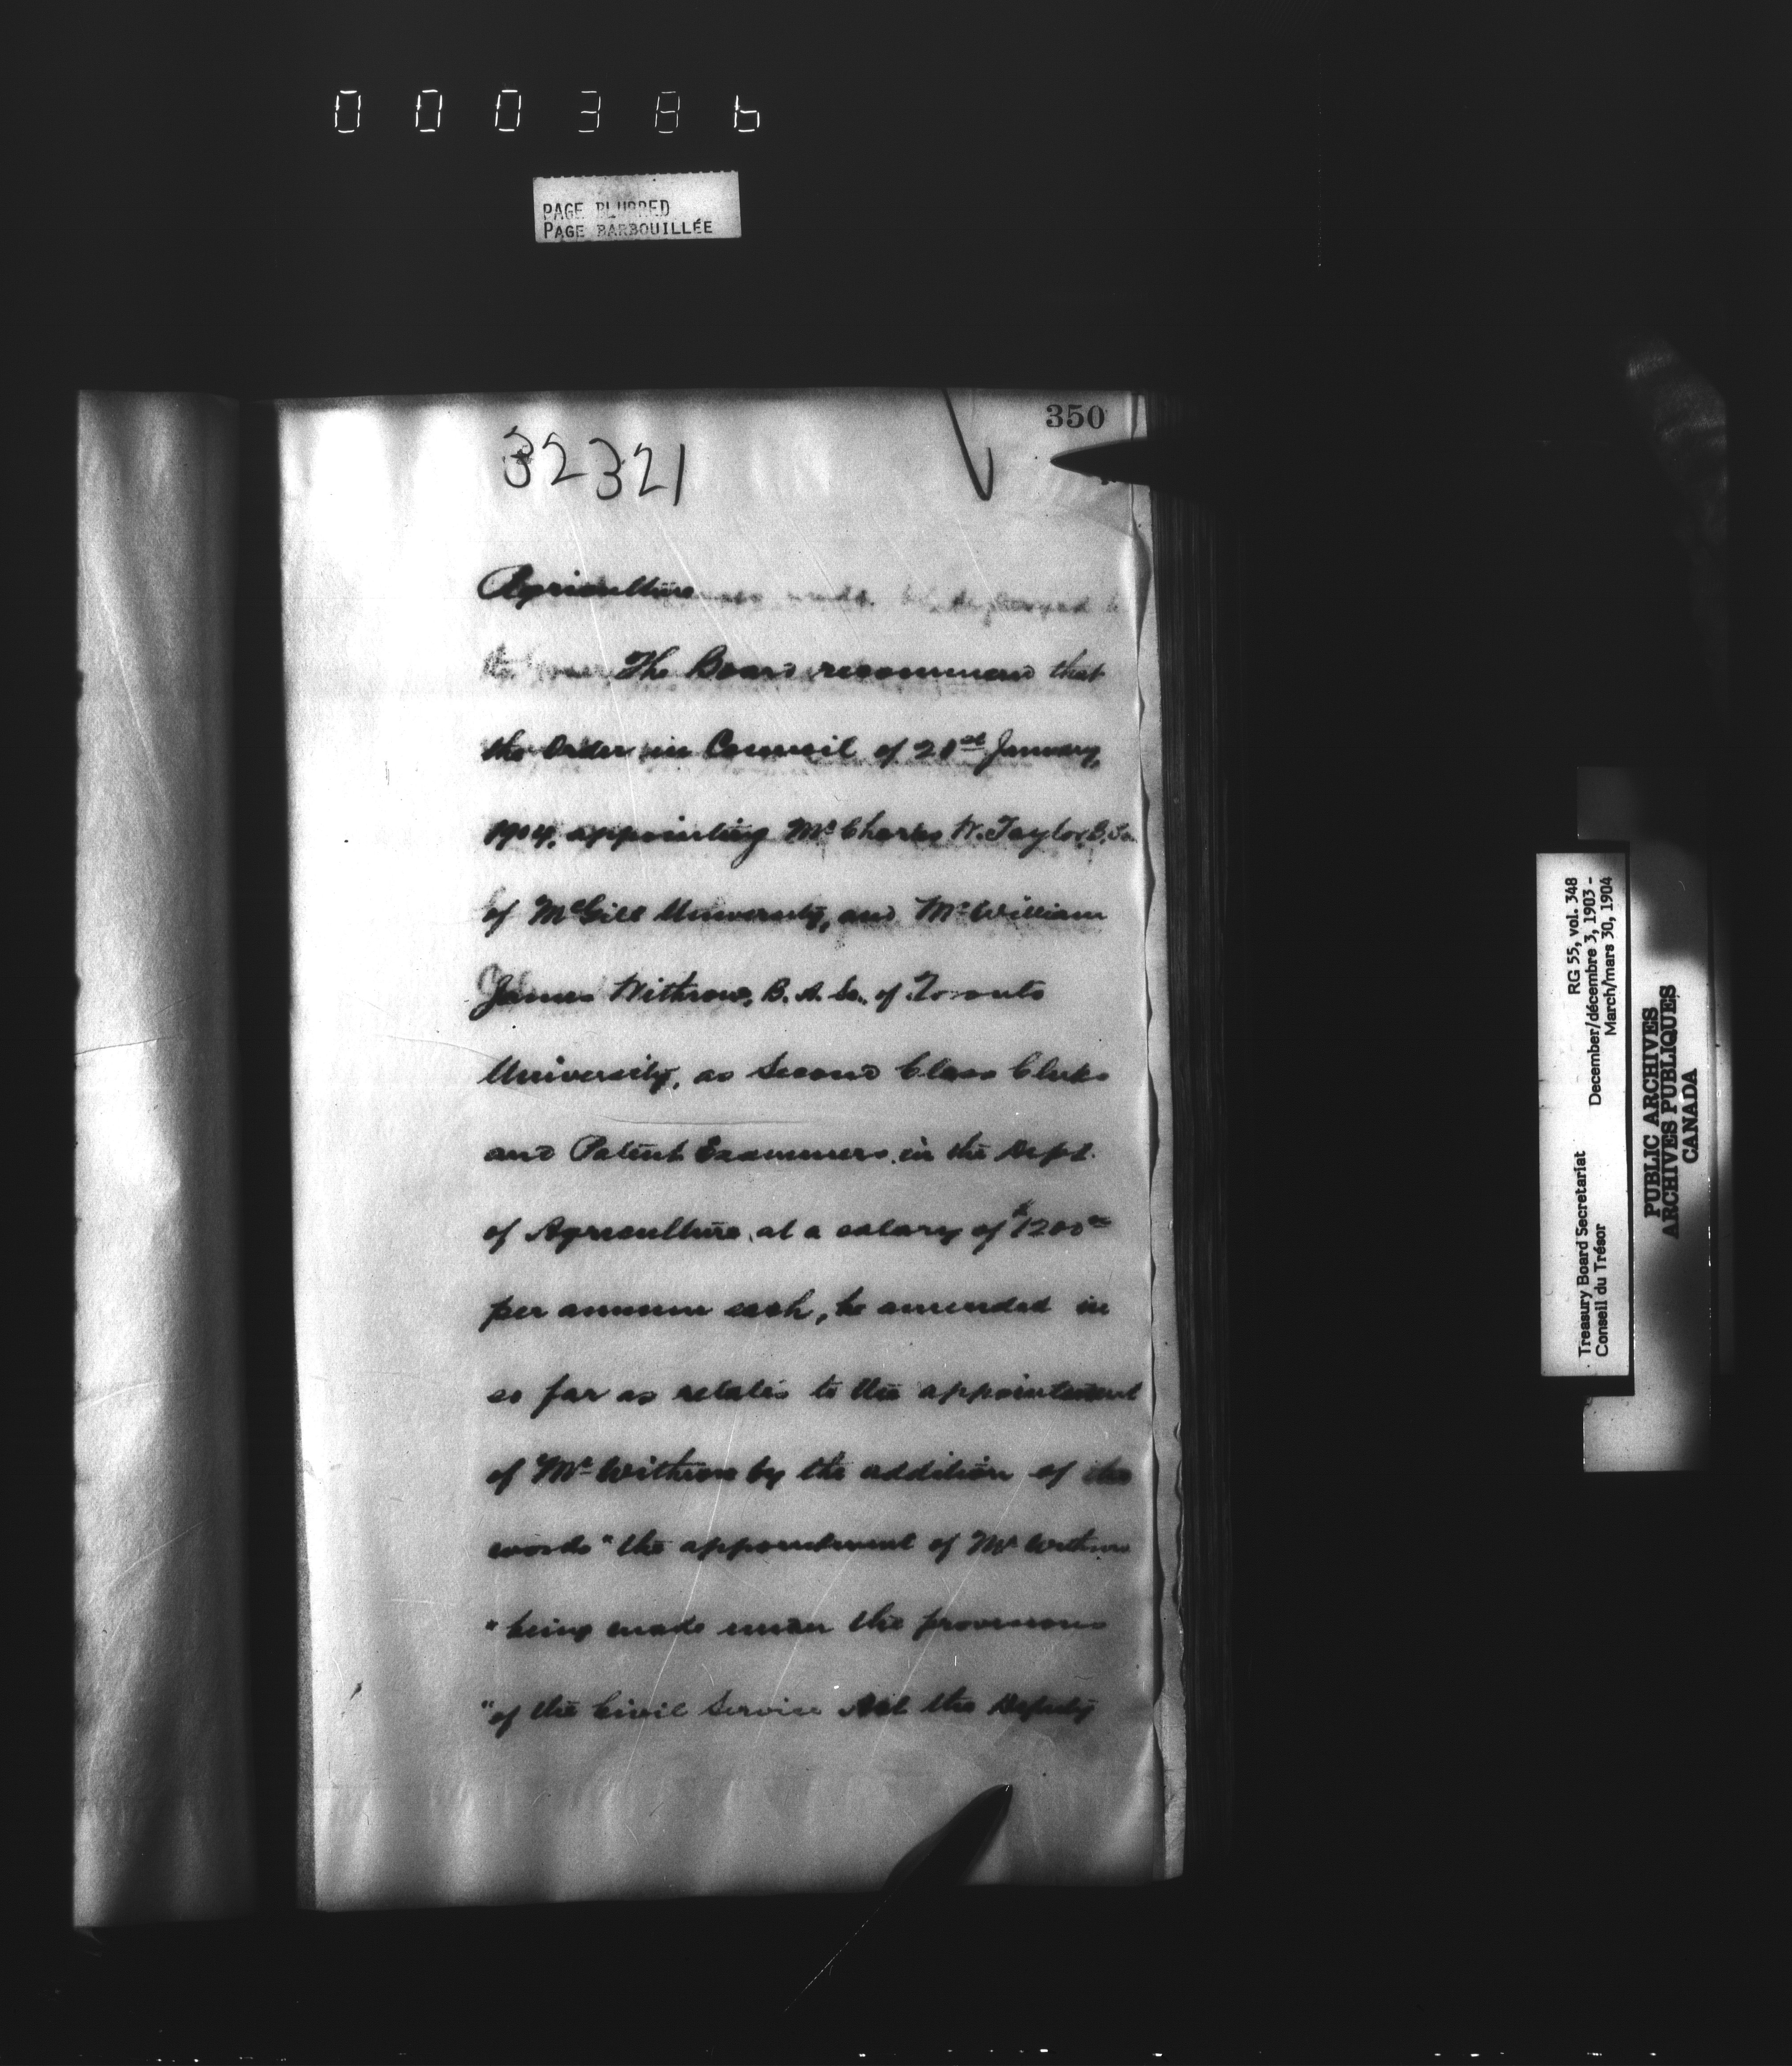 000386
PAGE BLURRED
PAGE BARBOUILLÉE
350
32321
Agriculture
The Board recommend that
the Order in Council of 21st January,
1904, appointing Mr Charles W. Taylor, B. Sc.
of McGill University, and Mr William
James Withrow, B. A. Sc., of Toronto
University, as Second Class Clerks
and Patent Examiners in the Dept.
of Agriculture, at a salary of $1200.00
per annum each, be amended in
so far as relates to the appointment
of Mr Withrow by the addition of the
words "the appointment of Mr Withrow
"being made under the provisions
"of the Civil Service Act the Deputy
Treasury Board Secretariat RG 55, vol. 348
Conseil du Trésor December/décembre 3, 1903 -
March/mars 30, 1904
PUBLIC ARCHIVES
ARCHIVES PUBLIQUES
CANADA